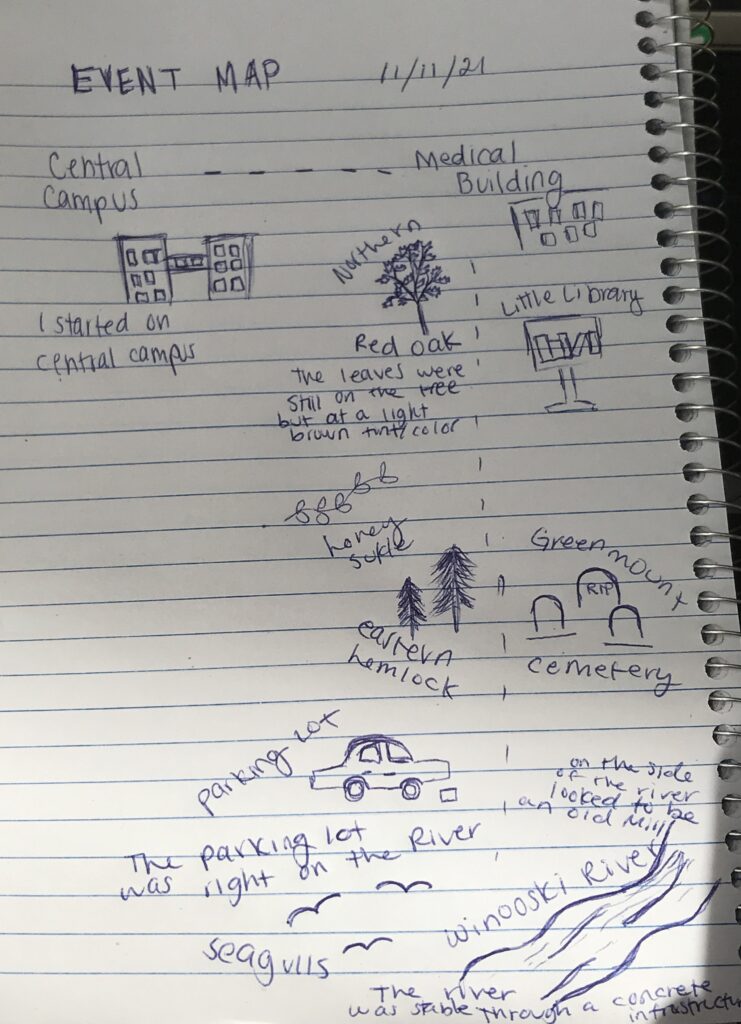 EVENT MAP 11/11/21
Central
Campus
Medical
Building
I started on
central campus
Northern
Red oak
The leaves were
still on the tree
but at a light
brown tint/color
Little Library
honey
sukle
eastern
hemlock
Greenmount
RIP
cemetery
parking lot
The parking lot
was right on the River
on the side
of the river
looked to be
an old Mill
Winooski River
seagulls
The river
was stable through a concrete
infrastructure